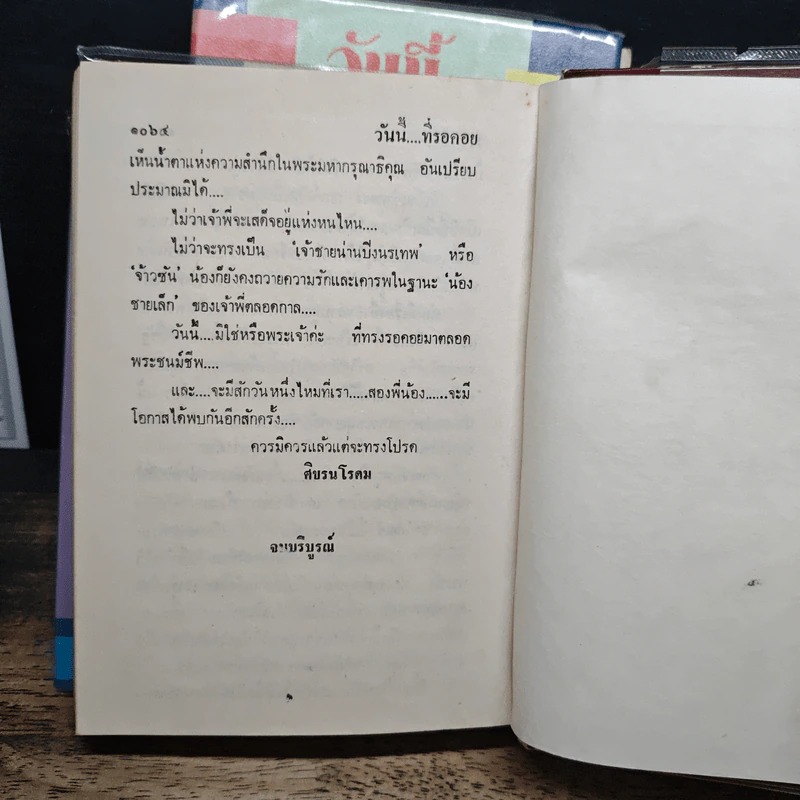 วันนี้
๑๐๖๔ วันนี้....ที่รอคอย
เห็นน้ำตาแห่งความสำนึกในพระมหากรุณาธิคุณ อันเปรียบ
ประมาณมิได้....
ไม่ว่าเจ้าพี่จะเสด็จอยู่แห่งหนไหน....
ไม่ว่าจะทรงเป็น 'เจ้าชายน่านปิงนรเทพ' หรือ
'จ้าวซัน' น้องก็ยังคงถวายความรักและเคารพในฐานะ 'น้อง
ชายเล็ก' ของเจ้าพี่ตลอดกาล....
วันนี้....มิใช่หรือพระเจ้าค่ะ ที่ทรงรอคอยมาตลอด
พระชนม์ชีพ....
และ....จะมีสักวันหนึ่งไหมที่เรา.....สองพี่น้อง......จะมี
โอกาสได้พบกันอีกสักครั้ง....
ควรมิควรแล้วแต่จะทรงโปรด
ศิขรนโรดม
จบบริบูรณ์